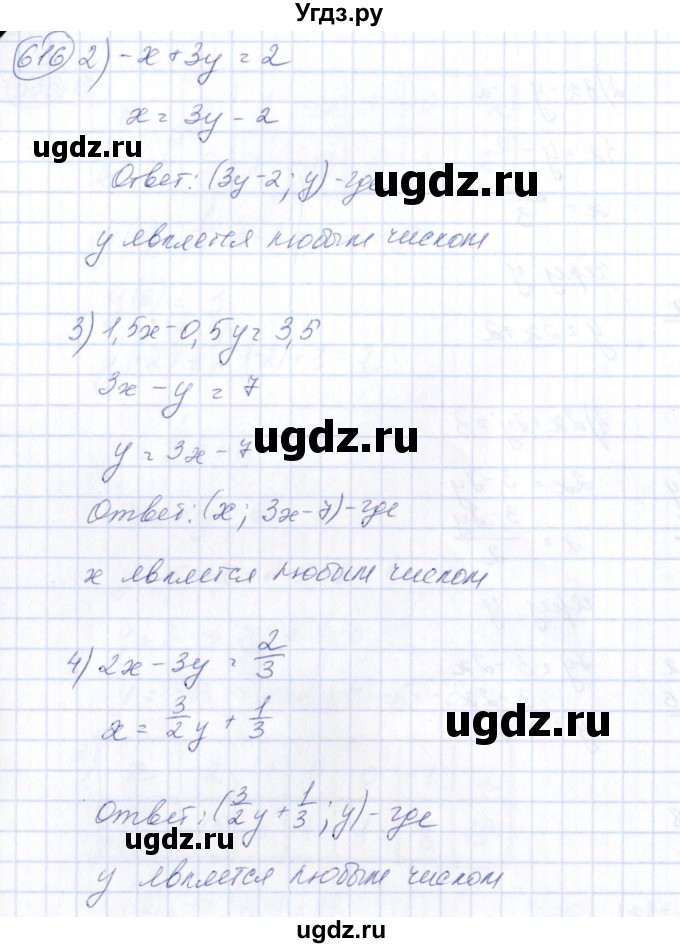 Угдз.ру
616 2) -x + 3y = 2
x = 3y - 2
ugdz.ru
Ответ: (3y-2; y) - где
ugdz.ru
y является любым числом
3) 1,5x - 0,5y = 3,5
3x - y = 7
y = 3x - 7
ugdz.ru
Ответ: (x; 3x-7) - где
x является любым числом
4) 2x - 3y = 2/3
x = 3/2 y + 1/3
ugdz.ru
Ответ: (3/2 y + 1/3; y) - где
ugdz.ru
y является любым числом
ugdz.ru